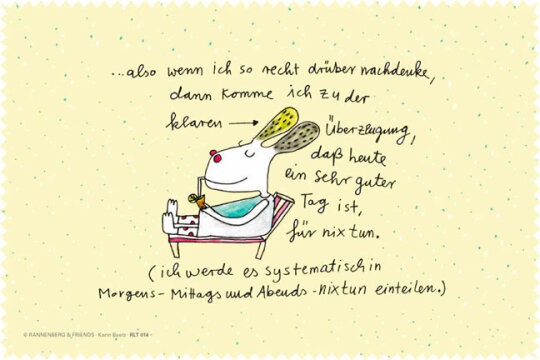 ...also wenn ich so recht drüber nachdenke,
dann komme ich zu der
klaren → Überzeugung,
daß heute
ein sehr guter
Tag ist,
für nix tun.
(ich werde es systematisch in
Morgens- Mittags und Abends -nixtun einteilen.)
© RANNENBERG & FRIENDS · Karin Bartz · RLT 014 ·